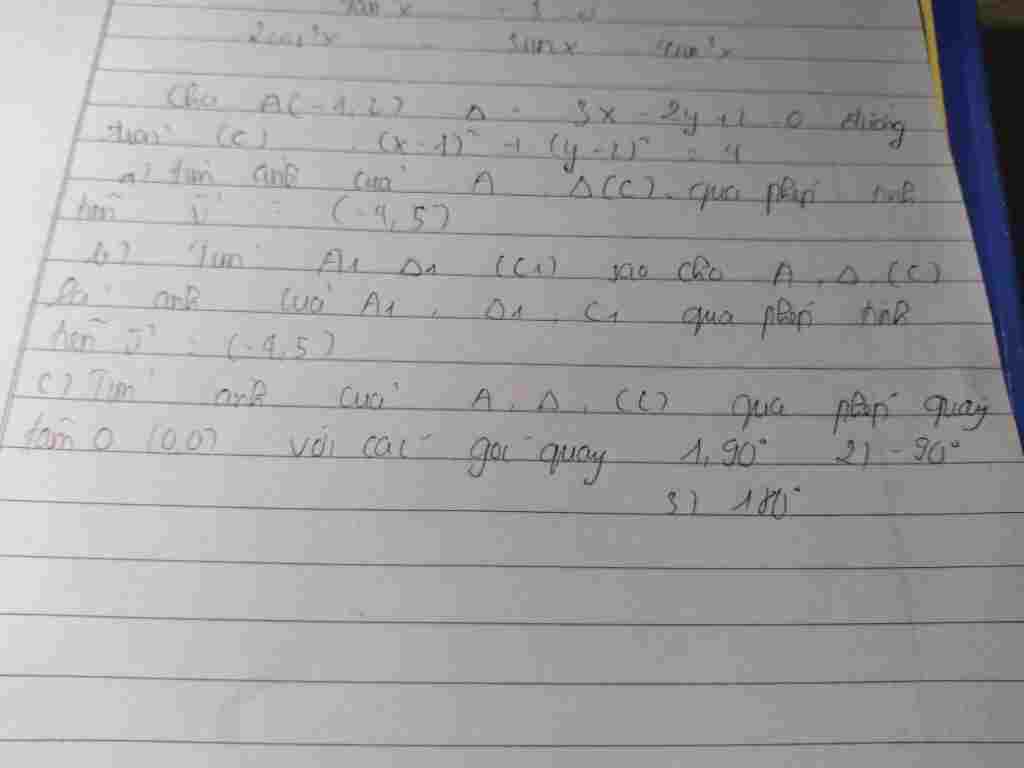 2cos²x - 3sinx
Cho A(-1,2) Δ: 3x-2y+1=0 đường
tròn (C) (x-1)² + (y-2)² = 4
a) tìm ảnh của A, Δ, (C) qua phép tịnh
tiến v: (-4,5)
b) Tìm A1 Δ1 (C1) sao cho A, Δ, (C)
là ảnh của A1, Δ1, C1 qua phép tịnh
tiến v: (-4,5)
c) Tìm ảnh của A, Δ, (C) qua phép quay
tâm O (0,0) với các góc quay 1, 90° 2) -90°
3) 180°